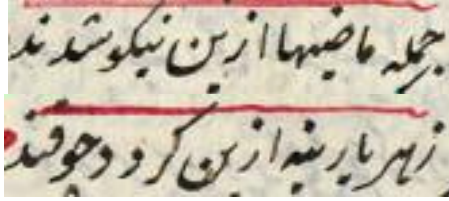 جمله ماضیها ازین نیکو شدند
زهر پارینه ازین گردد چو قند